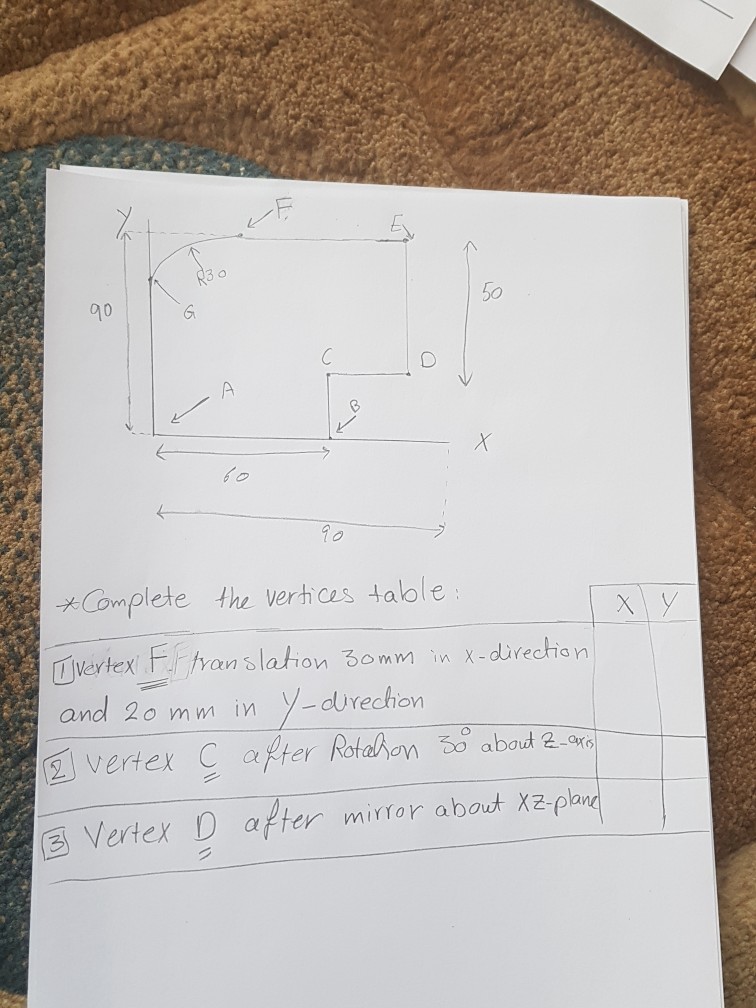 Y
F
E
R30
50
90
G
C
D
A
B
X
60
90
*Complete the vertices table:
X Y
1 vertex F translation 30mm in x-direction
and 20 mm in Y-direction
2 Vertex C after Rotation 30° about Z-axis
3 Vertex D after mirror about XZ-plane